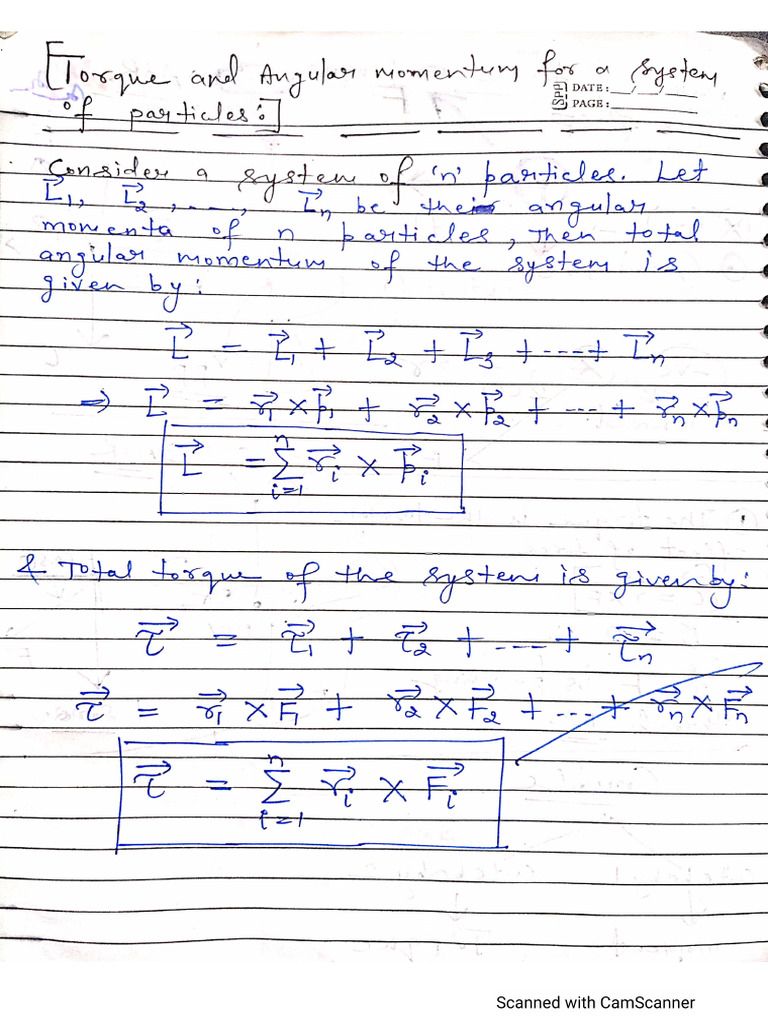 [Torque and Angular momentum for a system
SPP DATE:___/___/___
of particles:]
PAGE:
Consider a system of 'n' particles. Let
L⃗₁, L⃗₂, ..., L⃗ₙ be their angular
momenta of n particles, then total
angular momentum of the system is
given by:
L⃗ = L⃗₁ + L⃗₂ + L⃗₃ + ---- + L⃗ₙ
⇒ L⃗ = r⃗₁ × p⃗₁ + r⃗₂ × p⃗₂ + --- + r⃗ₙ × p⃗ₙ
L⃗ = Σⁿᵢ₌₁ r⃗ᵢ × p⃗ᵢ
& Total torque of the system is given by:
τ⃗ = τ⃗₁ + τ⃗₂ + ---- + τ⃗ₙ
τ⃗ = r⃗₁ × F⃗₁ + r⃗₂ × F⃗₂ + --- + r⃗ₙ × F⃗ₙ
τ⃗ = Σⁿᵢ₌₁ r⃗ᵢ × F⃗ᵢ
Scanned with CamScanner